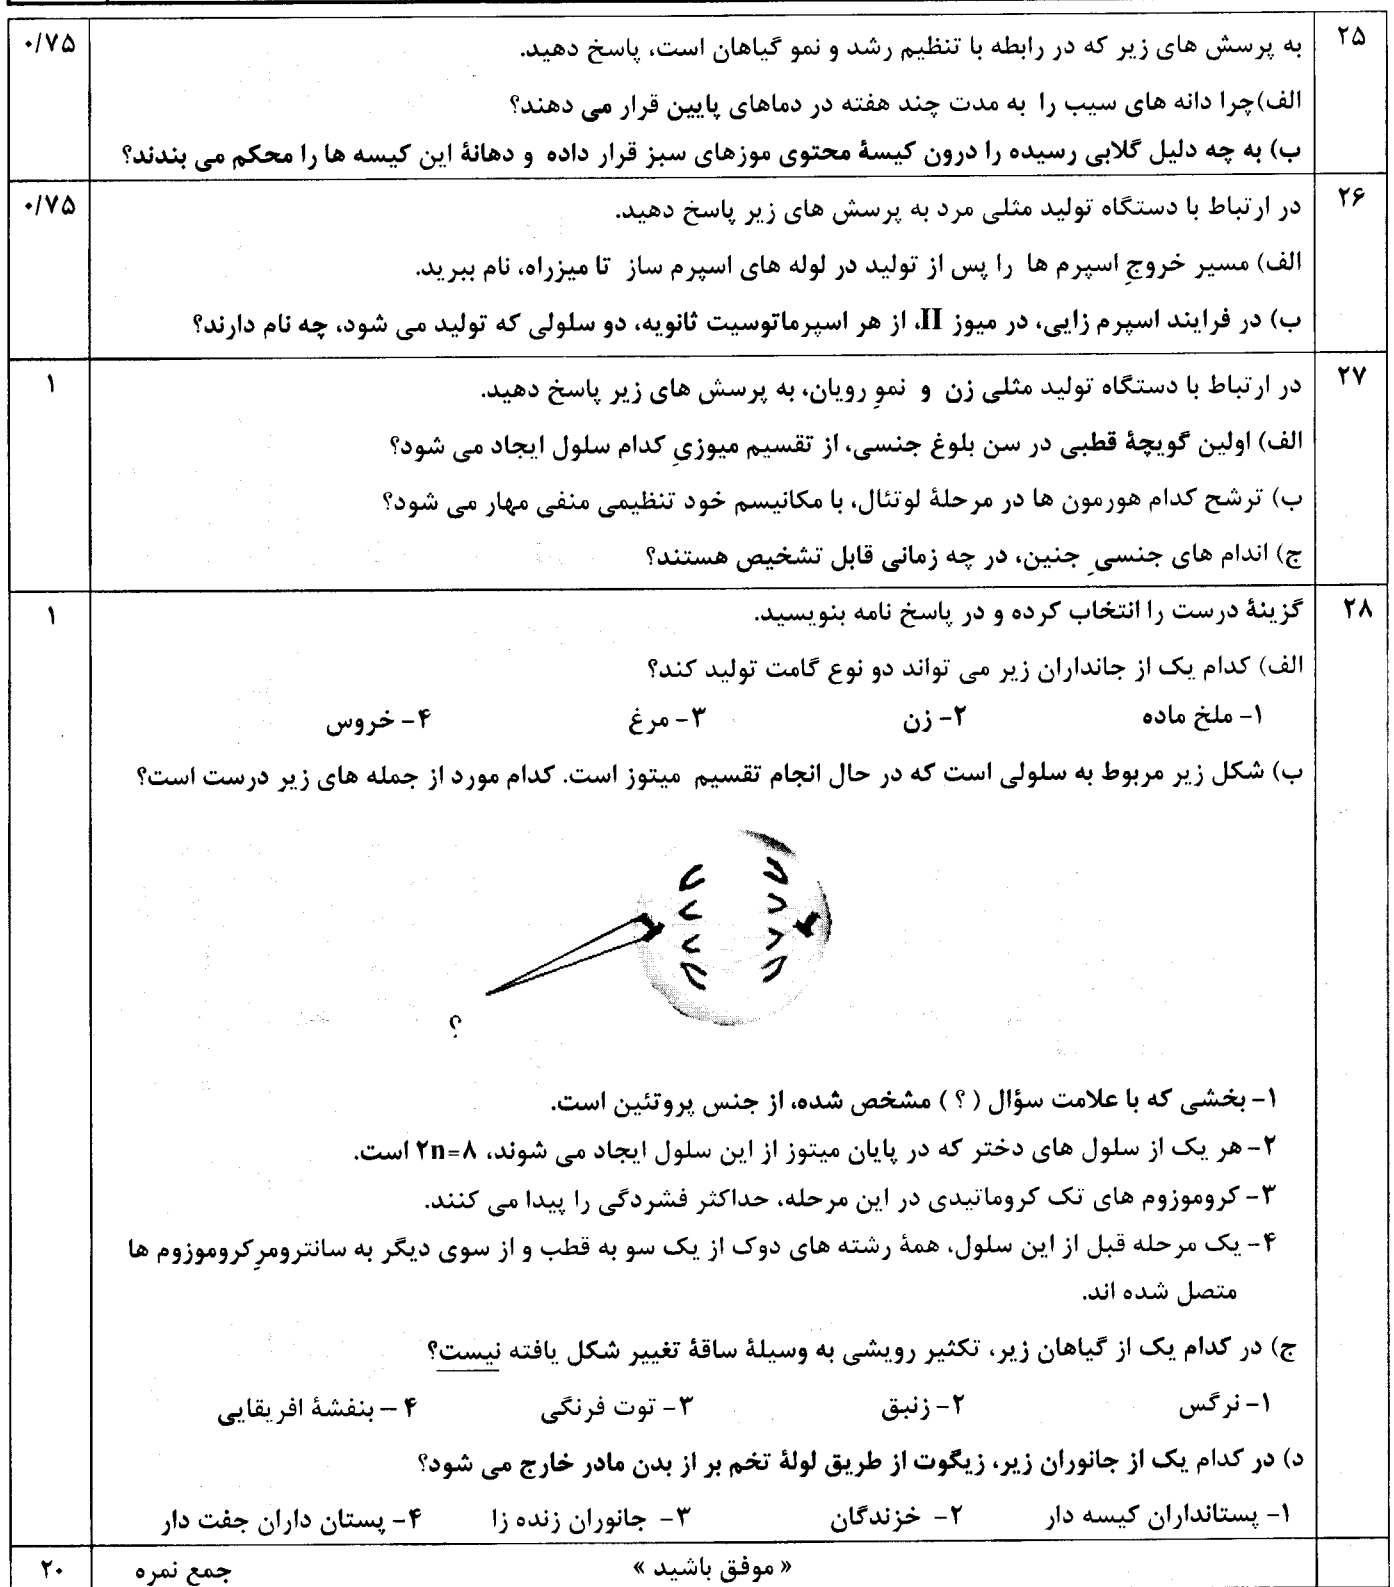 ۲۵ به پرسش های زیر که در رابطه با تنظیم رشد و نمو گیاهان است، پاسخ دهید. ۰/۷۵
الف)چرا دانه های سیب را به مدت چند هفته در دماهای پایین قرار می دهند؟
ب) به چه دلیل گلابی رسیده را درون کیسهٔ محتوی موزهای سبز قرار داده و دهانهٔ این کیسه ها را محکم می بندند؟
۲۶ در ارتباط با دستگاه تولید مثلی مرد به پرسش های زیر پاسخ دهید. ۰/۷۵
الف) مسیر خروجِ اسپرم ها را پس از تولید در لوله های اسپرم ساز تا میزراه، نام ببرید.
ب) در فرایند اسپرم زایی، در میوز II، از هر اسپرماتوسیت ثانویه، دو سلولی که تولید می شود، چه نام دارند؟
۲۷ در ارتباط با دستگاه تولید مثلی زن و نموِ رویان، به پرسش های زیر پاسخ دهید. ۱
الف) اولین گویچهٔ قطبی در سن بلوغ جنسی، از تقسیم میوزیِ کدام سلول ایجاد می شود؟
ب) ترشح کدام هورمون ها در مرحلهٔ لوتئال، با مکانیسم خود تنظیمی منفی مهار می شود؟
ج) اندام های جنسیِ جنین، در چه زمانی قابل تشخیص هستند؟
۲۸ گزینهٔ درست را انتخاب کرده و در پاسخ نامه بنویسید. ۱
الف) کدام یک از جانداران زیر می تواند دو نوع گامت تولید کند؟
۱- ملخ ماده ۲- زن ۳- مرغ ۴- خروس
ب) شکل زیر مربوط به سلولی است که در حال انجام تقسیم میتوز است. کدام مورد از جمله های زیر درست است؟
؟
۱- بخشی که با علامت سؤال ( ؟ ) مشخص شده، از جنس پروتئین است.
۲- هر یک از سلول های دختر که در پایان میتوز از این سلول ایجاد می شوند، ۲n=۸ است.
۳- کروموزوم های تک کروماتیدی در این مرحله، حداکثر فشردگی را پیدا می کنند.
۴- یک مرحله قبل از این سلول، همهٔ رشته های دوک از یک سو به قطب و از سوی دیگر به سانترومرِکروموزوم ها
متصل شده اند.
ج) در کدام یک از گیاهان زیر، تکثیر رویشی به وسیلهٔ ساقهٔ تغییر شکل یافته نیست؟
۱- نرگس ۲- زنبق ۳- توت فرنگی ۴ – بنفشهٔ افریقایی
د) در کدام یک از جانوران زیر، زیگوت از طریق لولهٔ تخم بر از بدن مادر خارج می شود؟
۱- پستانداران کیسه دار ۲- خزندگان ۳- جانوران زنده زا ۴- پستان داران جفت دار
« موفق باشید » جمع نمره ۲۰